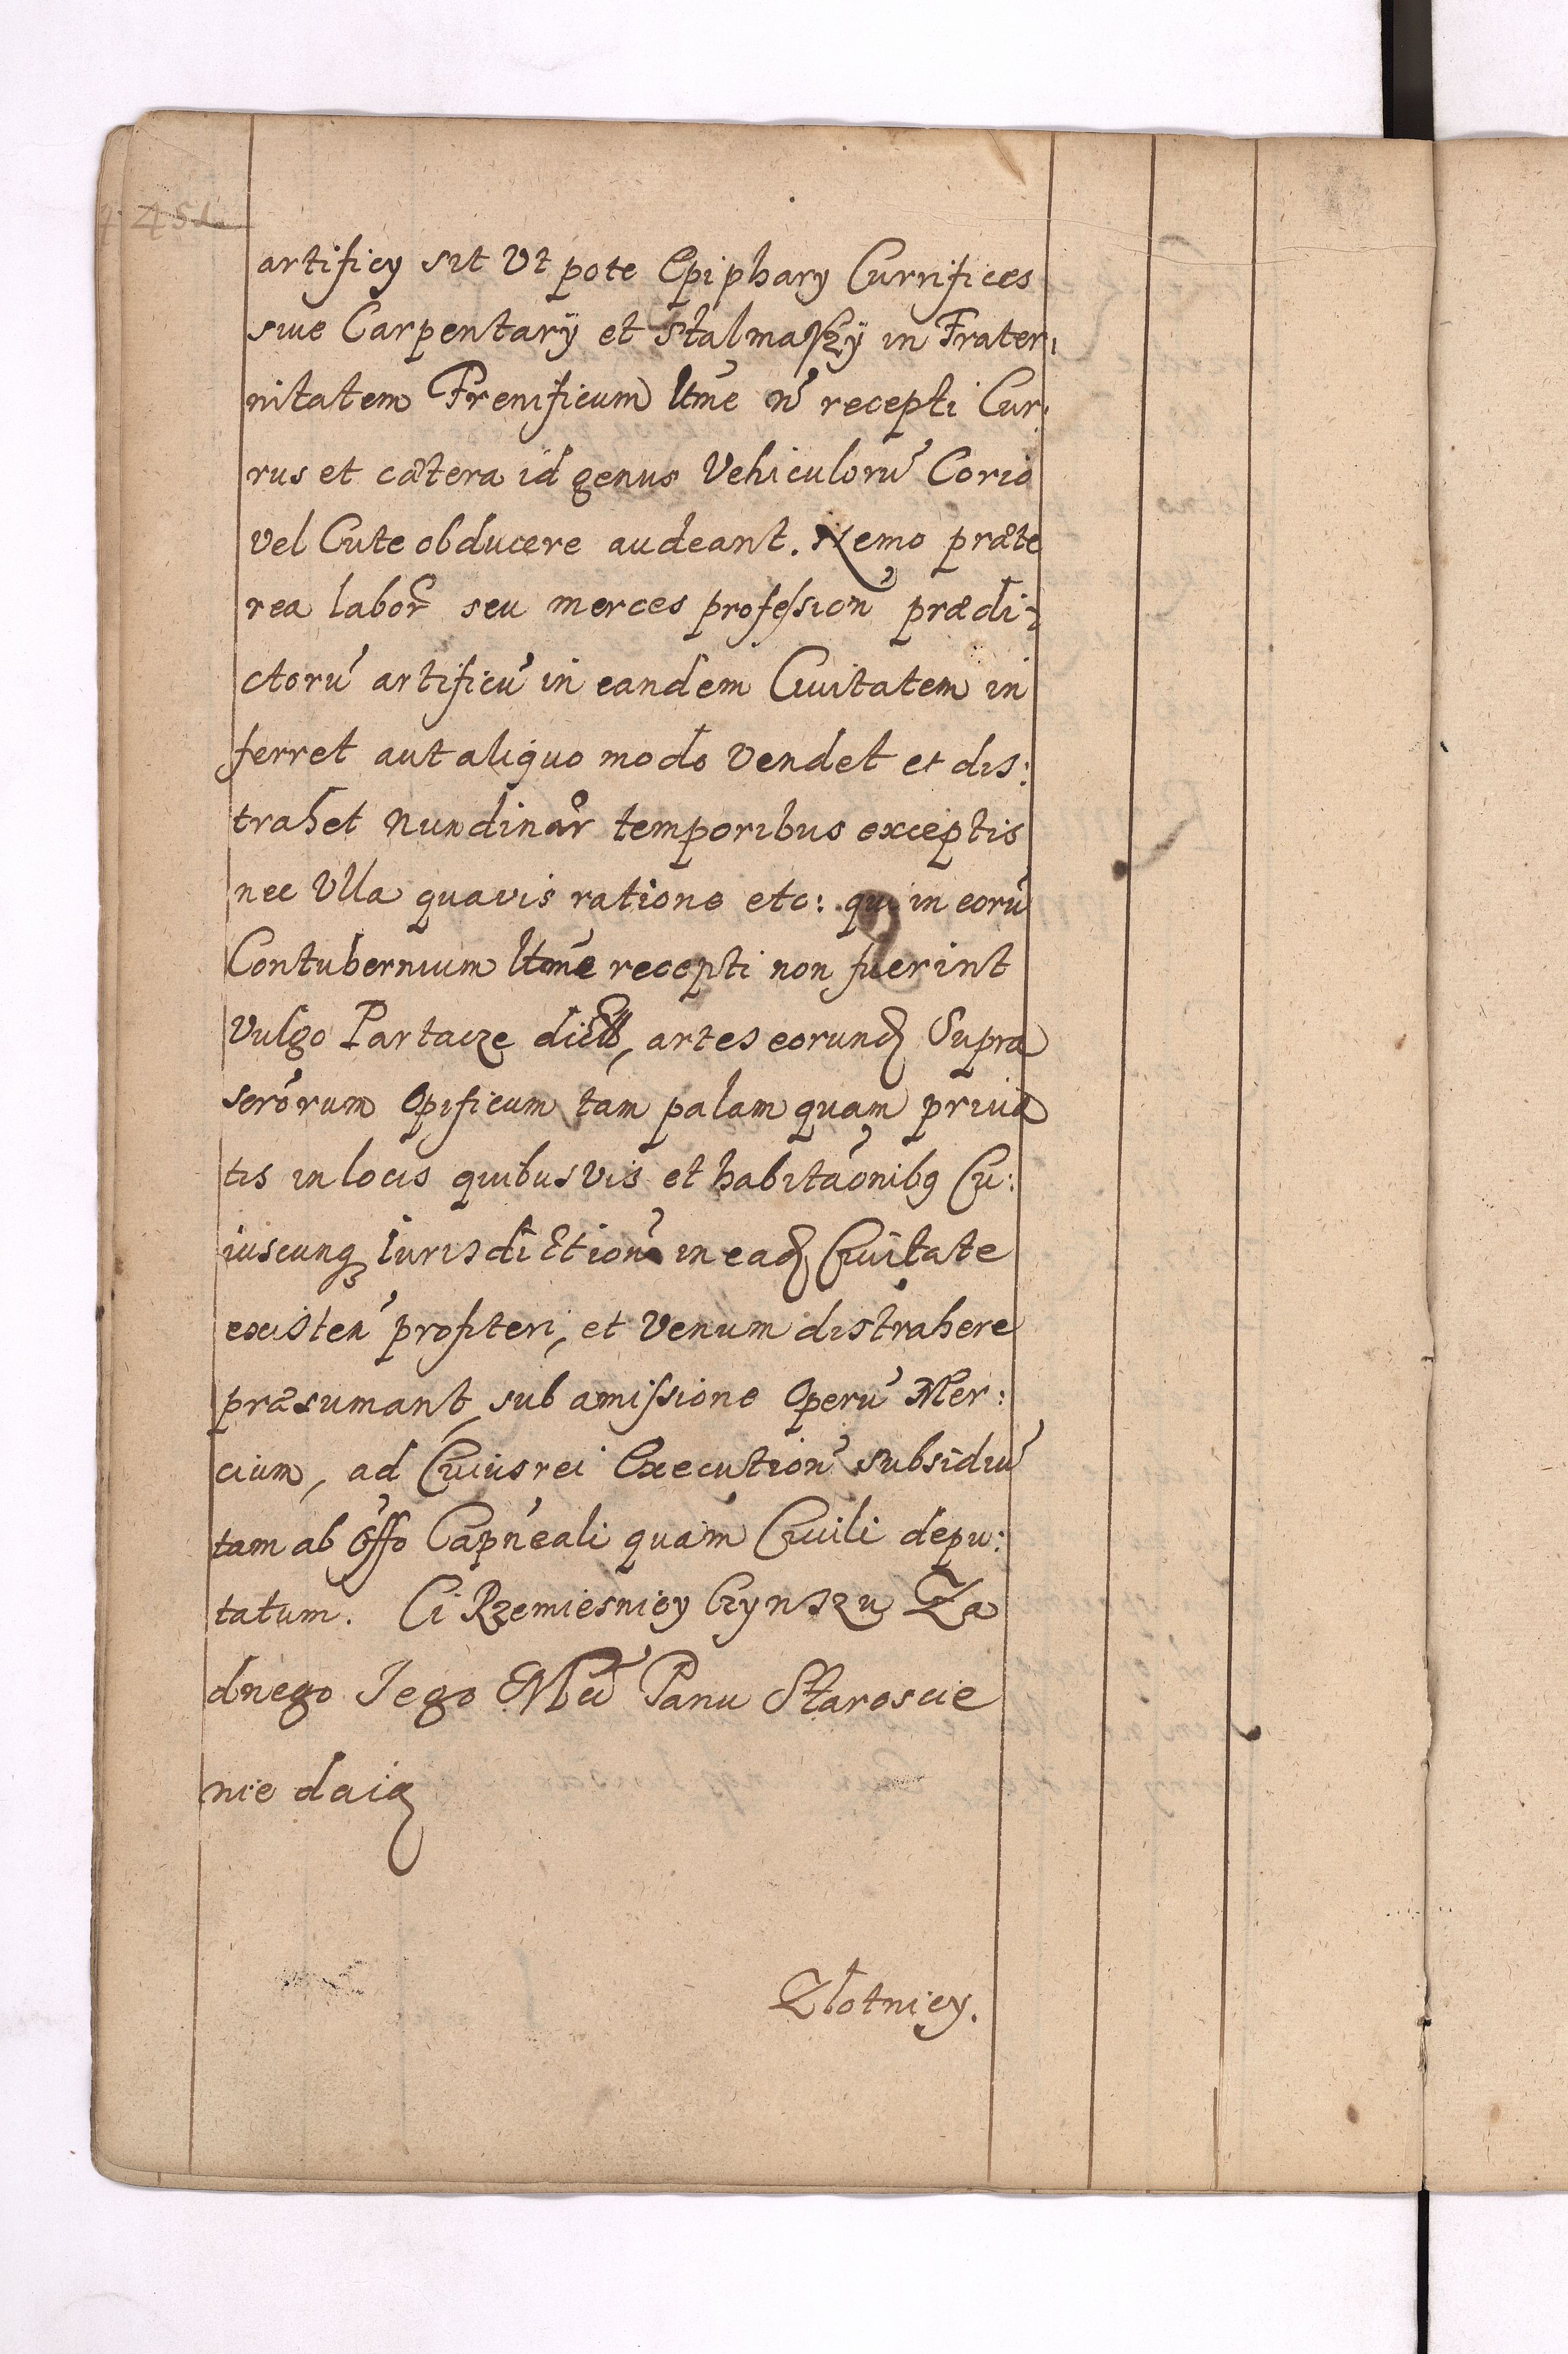 451
artificy sit Vt pote Epiphary Currifices
siue Carpentarÿ et Stalmaszÿ in Frater:
nitatem Frenificum ltme n̄ recepti Cur:
rus et cætera id genus Vehiculorũ Corio
vel Cute obducere audeant. Nemo præte
rea labor̃ seu merces profession̄ prædi:
ctorũ artificũ in eandem Ciuitatem in
ferret aut aliquo modo Vendet et dis:
trahet Nundinar̃ temporibus exceptis
nec Vlla quavis ratione etc: qui in eorũ
Contubernium ltme recepti non fuerint
Vulgo Partacze dicti, artes eorund Supra
scr̃orum Opificum tam palam quam priua
tis in locis quibusvis et habitãonibq Cu:
iuscunqꝫ Iurisdiction̄ in ead Ciuitate
existen̄ profiteri, et Venum distrahere
præsumant, sub amissione Operũ Mer:
cium, ad Cuius rei Execution̄ subsidiũ
tam ab Offo Capn̄eali quam Ciuili depu:
tatum. Ci Rzemiesnicy Czynszu Za
dnego Jego Mci Panu Staroscie
nie daią
Złotnicy.